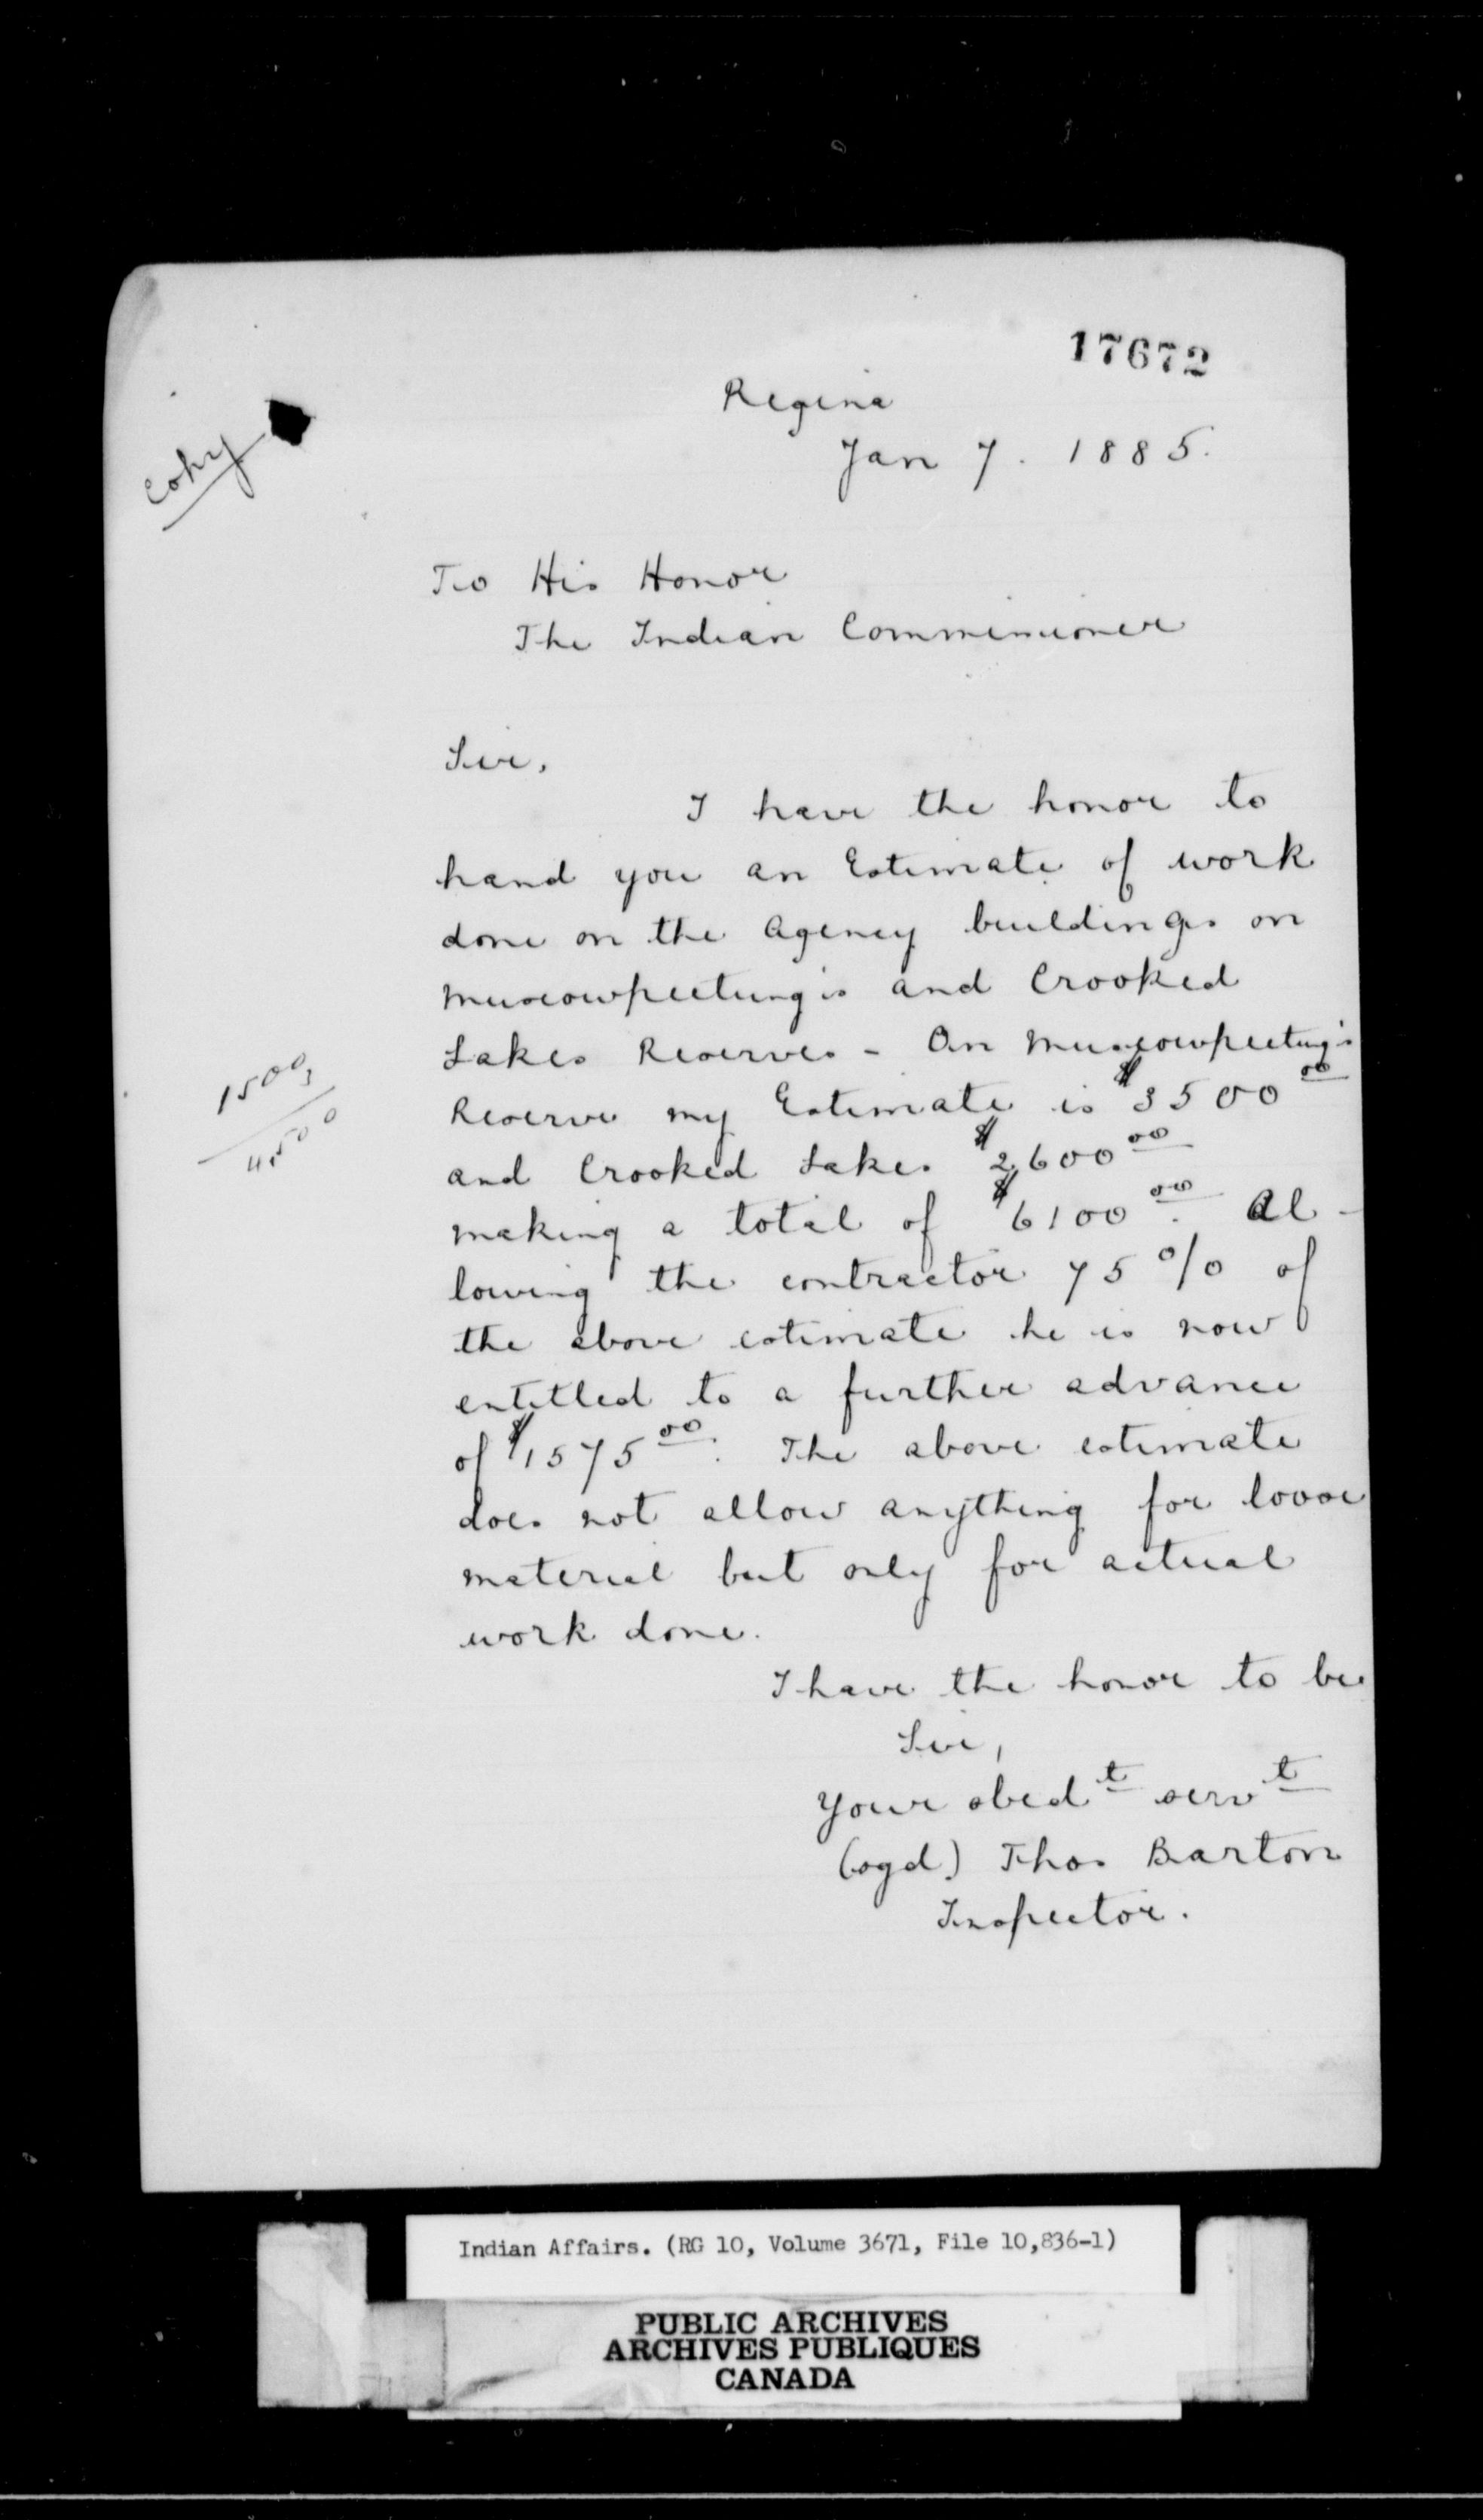 17672
Regina
Jan 7. 1885.
Copy
To His Honor
The Indian Commissioner
Sir,
I have the honor to
hand you an Estimate of work
done on the Agency buildings on
Muscowpeetung's and Crooked
Lakes Reserves - On Muscowpeetung's
Reserve my Estimate is $3500 00
and Crooked Lakes $2600 00
making a total of $6100 00. Al-
lowing the contractor 75 % of
the above estimate he is now
entitled to a further advance
of $1575 00. The above estimate
does not allow anything for loose
material but only for actual
work done.
1500
4,500
I have the honor to be
Sir,
Your obedt servt
(sgd) Thos Barton
Inspector.
Indian Affairs. (RG 10, Volume 3671, File 10,836-1)
PUBLIC ARCHIVES
ARCHIVES PUBLIQUES
CANADA